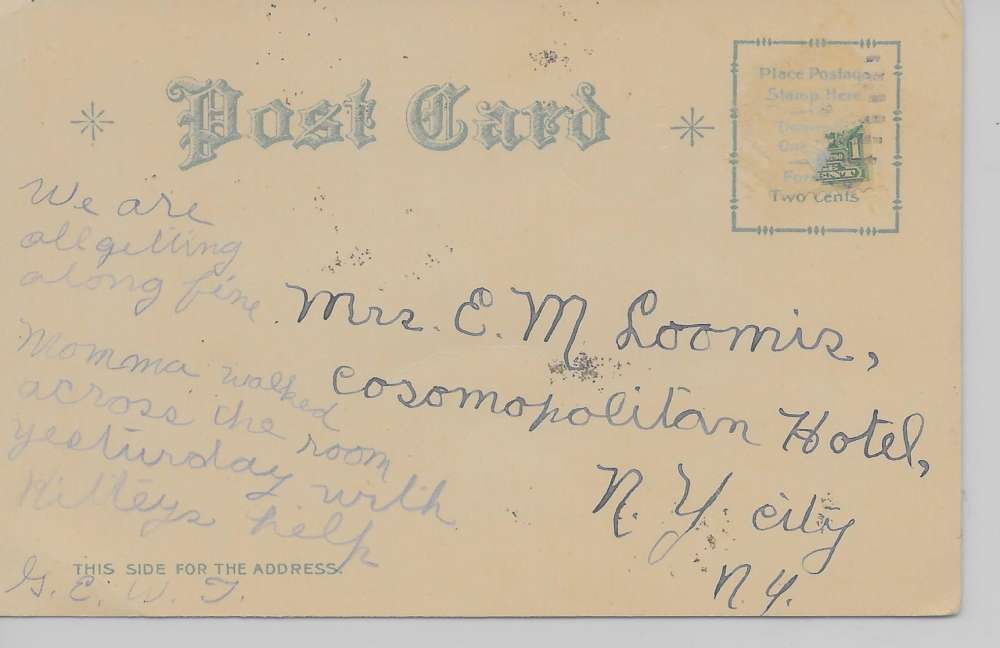 Post Card
Place Postage
Stamp Here
One
Two Cents
1
We are
all getting
along fine
Momma walked
across the room
yesturday with
Kitteys help
G. E. W. T.
Mrs. E. M Loomis,
Cosomopolitan Hotel,
N. Y. city
N.Y.
THIS SIDE FOR THE ADDRESS.